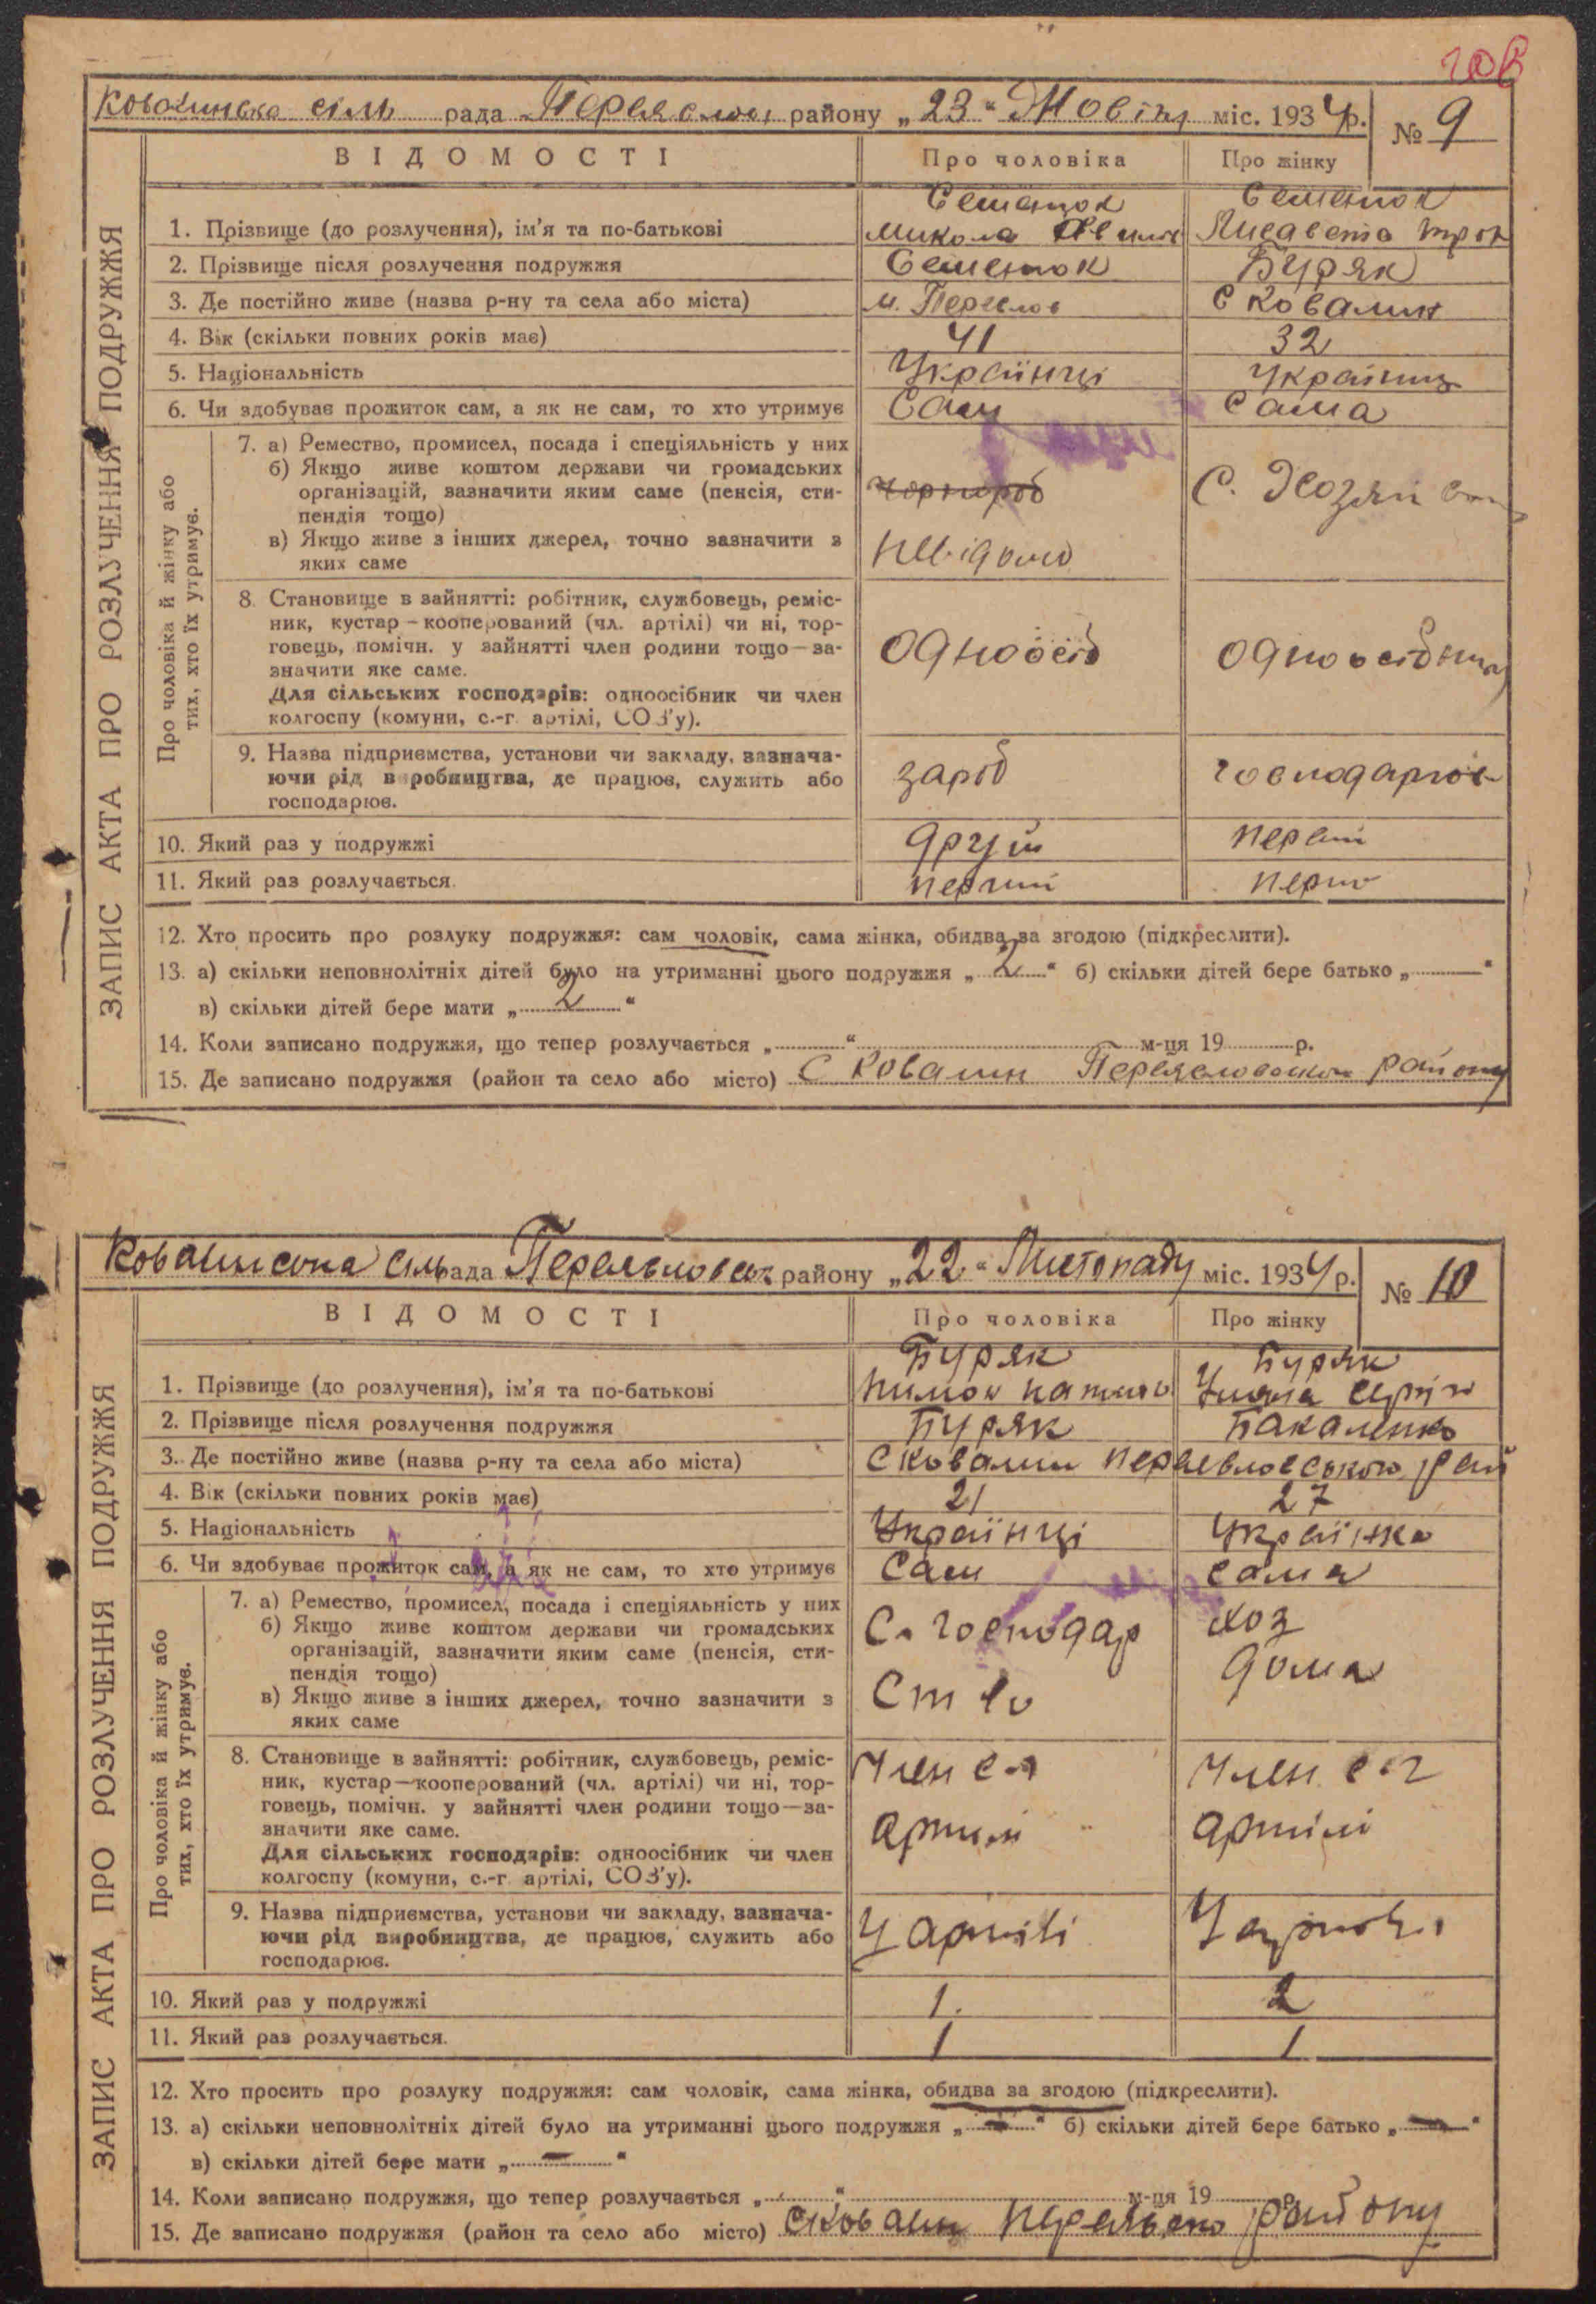 Ковалинська сіль рада Переяслов, району „23“ Жовтня міс. 1934 р. № 9
ЗАПИС АКТА ПРО РОЗЛУЧЕННЯ ПОДРУЖЖЯ
ВІДОМОСТІ Про чоловіка Про жінку
Семенюк Семенюк
1. Прізвище (до розлучення), ім'я та по-батькові Микола
2. Прізвище після розлучення подружжя Семенюк Буряк
3. Де постійно живе (назва р-ну та села або міста) м. Переслов с Ковалин
4. Вік (скільки повних років має) 41 32
5. Національність Українці
6. Чи здобуває прожиток сам, а як не сам, то хто утримує Сам Сама
Про чоловіка й жінку або тих, хто їх утримує.
7. а) Ремество, промисел, посада і спеціяльність у них
б) Якщо живе коштом держави чи громадських
організацій, зазначити яким саме (пенсія, сти- чорнороб С.
пендія тощо)
в) Якщо живе з інших джерел, точно зазначити з невідомо
яких саме
8. Становище в зайнятті: робітник, службовець, реміс-
ник, кустар – кооперований (чл. артілі) чи ні, тор-
говець, помічн. у зайнятті член родини тощо—за- одноосіб
значити яке саме.
Для сільських господарів: одноосібник чи член
колгоспу (комуни, с.-г. артілі, СОЗ'у).
9. Назва підприємства, установи чи закладу, зазнача-
ючи рід виробництва, де працює, служить або зароб
господарює.
10. Який раз у подружжі другий
11. Який раз розлучається.
12. Хто просить про розлуку подружжя: сам чоловік, сама жінка, обидва за згодою (підкреслити).
13. а) скільки неповнолітніх дітей було на утриманні цього подружжя „2“ б) скільки дітей бере батько „ “
в) скільки дітей бере мати „2“
14. Коли записано подружжя, що тепер розлучається „ “ м-ця 19 р.
15. Де записано подружжя (район та село або місто) с Ковалин району
рада району „22“ Листопаду міс. 1934 р. № 10
ЗАПИС АКТА ПРО РОЗЛУЧЕННЯ ПОДРУЖЖЯ
ВІДОМОСТІ Про чоловіка Про жінку
Буряк Буряк
1. Прізвище (до розлучення), ім'я та по-батькові
2. Прізвище після розлучення подружжя Буряк Бакаленко
3. Де постійно живе (назва р-ну та села або міста) с Ковалин
4. Вік (скільки повних років має) 21 27
5. Національність Українці Українка
6. Чи здобуває прожиток сам, а як не сам, то хто утримує Сам сама
Про чоловіка й жінку або тих, хто їх утримує.
7. а) Ремество, промисел, посада і спеціяльність у них
б) Якщо живе коштом держави чи громадських С. господар хоз
організацій, зазначити яким саме (пенсія, сти-
пендія тощо) дома
в) Якщо живе з інших джерел, точно зазначити з ство
яких саме
8. Становище в зайнятті: робітник, службовець, реміс-
ник, кустар—кооперований (чл. артілі) чи ні, тор- Член с-г Член с-г
говець, помічн. у зайнятті член родини тощо—за-
значити яке саме. артілі артілі
Для сільських господарів: одноосібник чи член
колгоспу (комуни, с.-г. артілі, СОЗ'у).
9. Назва підприємства, установи чи закладу, зазнача-
ючи рід виробництва, де працює, служить або У артілі У
господарює.
10. Який раз у подружжі 1. 2
11. Який раз розлучається. 1 1
12. Хто просить про розлуку подружжя: сам чоловік, сама жінка, обидва за згодою (підкреслити).
13. а) скільки неповнолітніх дітей було на утриманні цього подружжя „—“ б) скільки дітей бере батько „—“
в) скільки дітей бере мати „—“
14. Коли записано подружжя, що тепер розлучається „ “ м-ця 19 р.
15. Де записано подружжя (район та село або місто) с Ковалин району